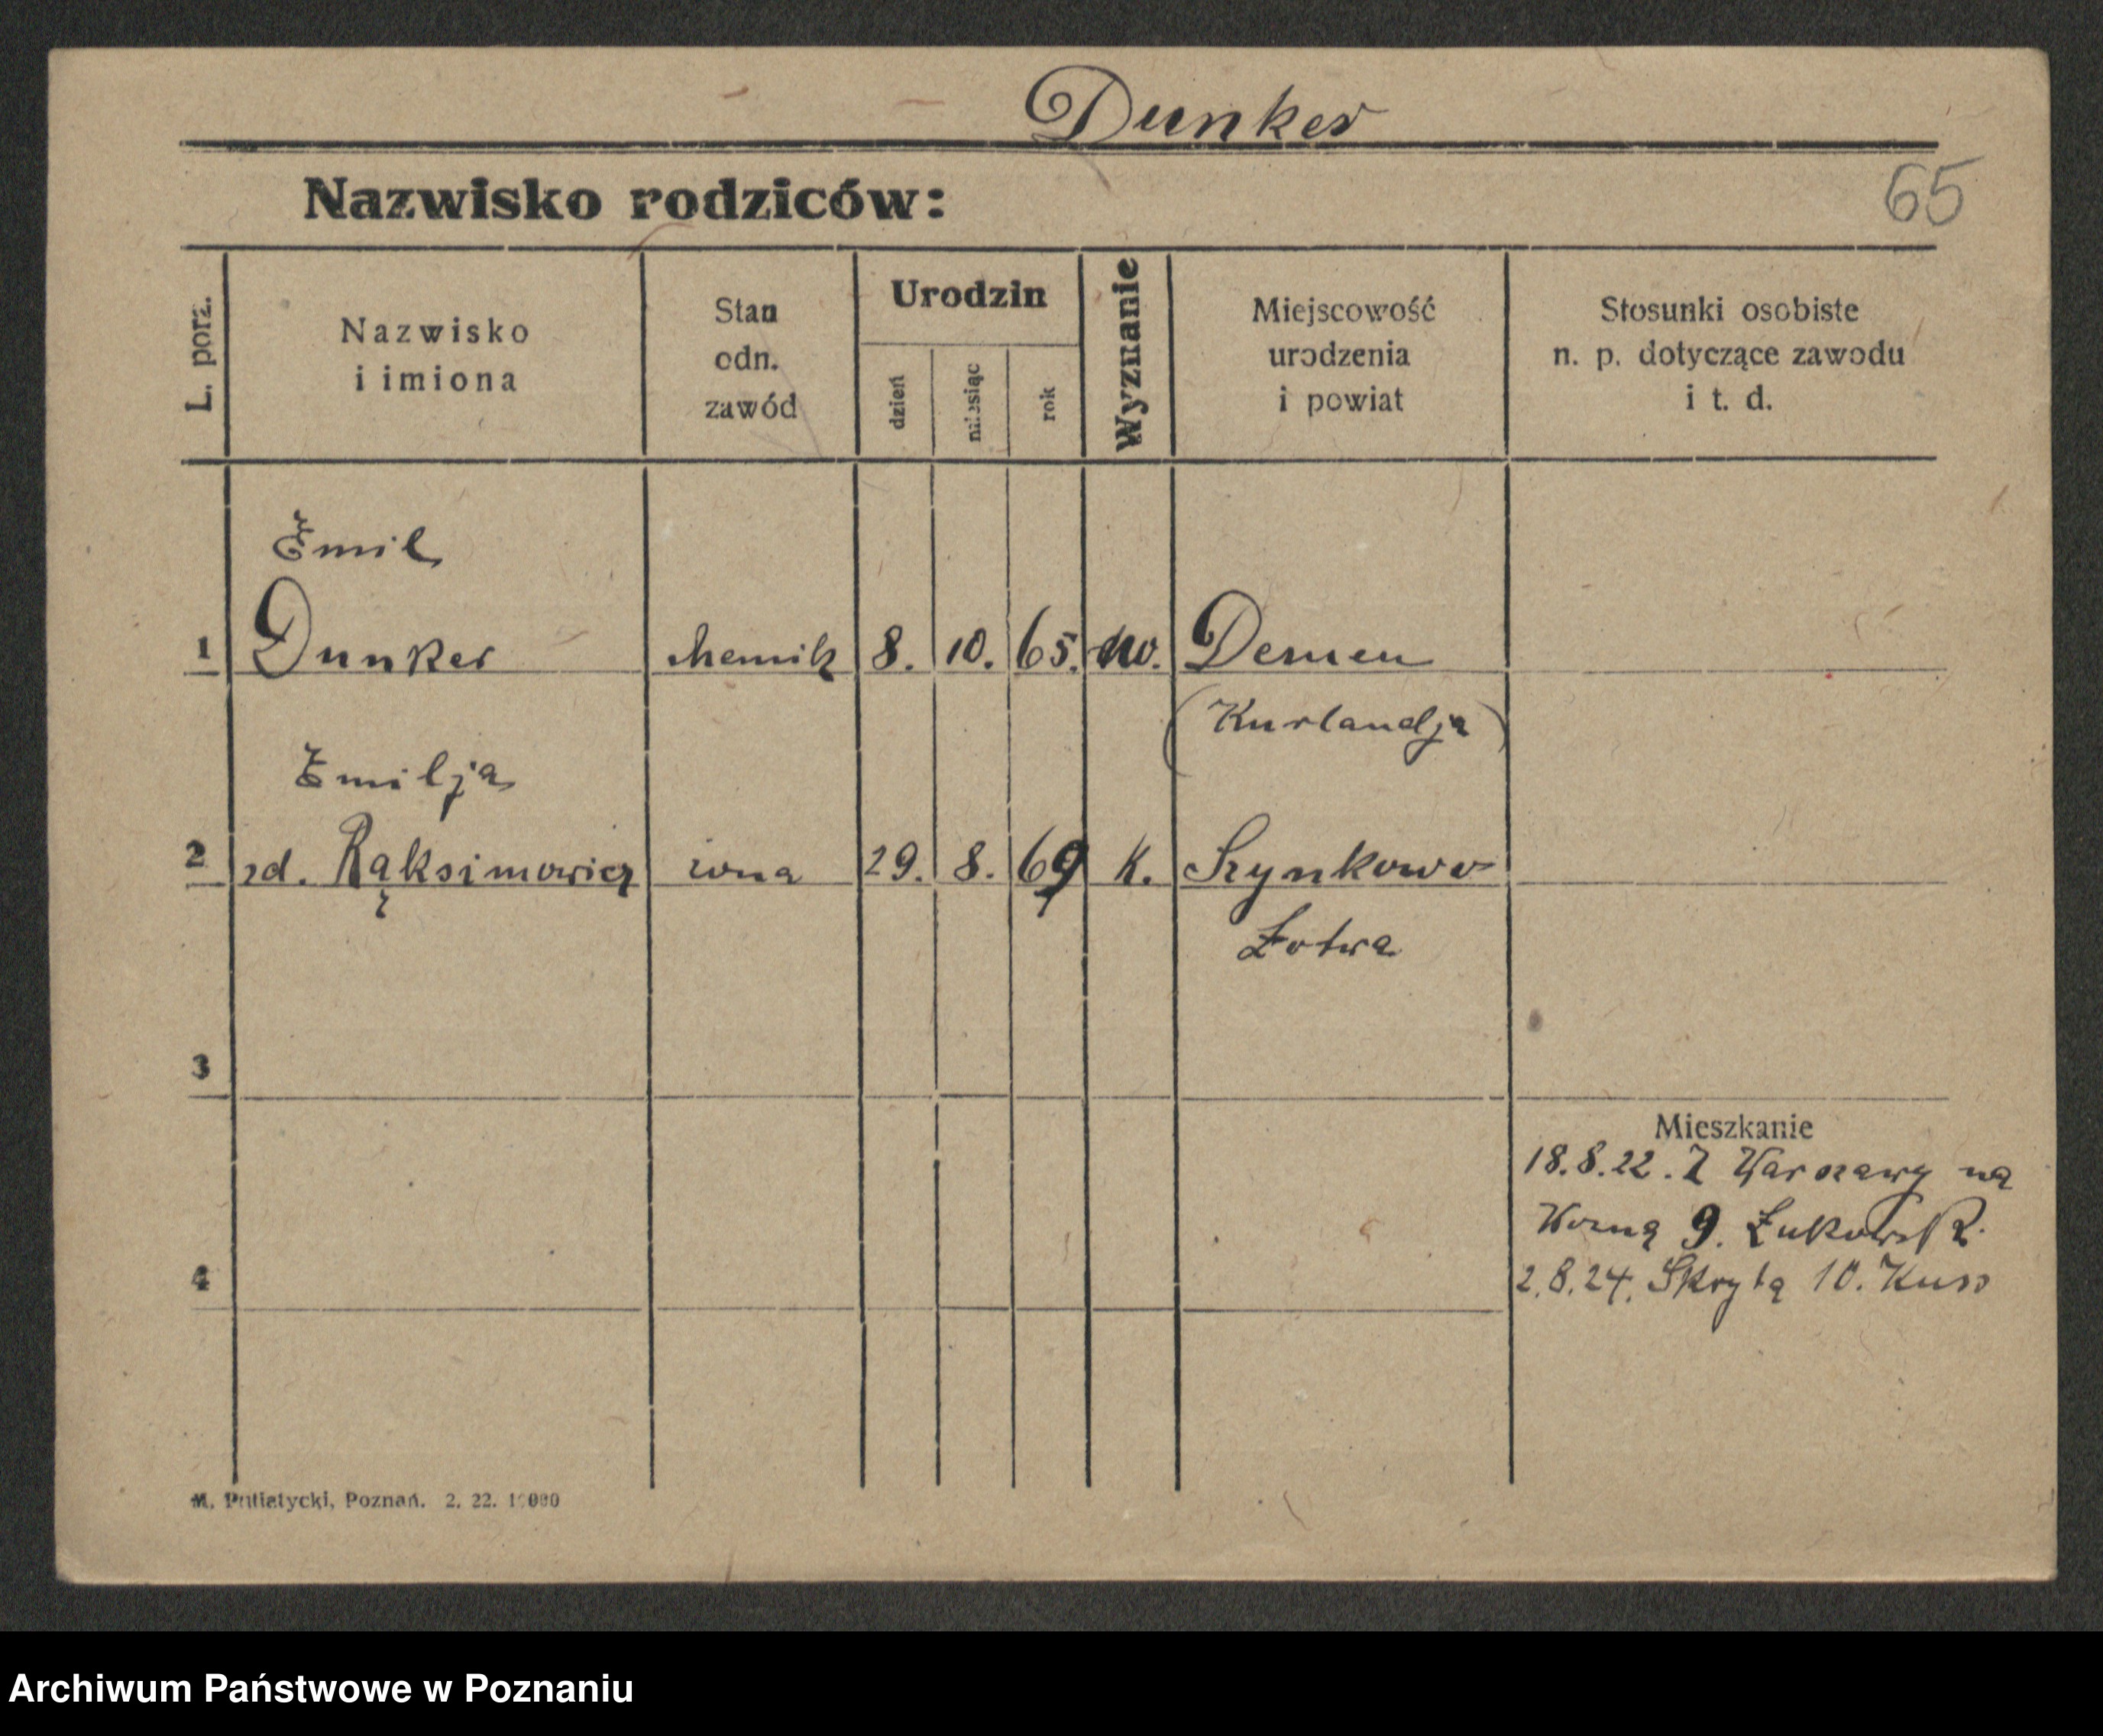 Dunker
Nazwisko rodziców:
65
L. porz.
Nazwisko
i imiona
Stan
odn.
zawód
Urodzin
dzień
miesiąc
rok
Wyznanie
Miejscowość
urodzenia
i powiat
Stosunki osobiste
n. p. dotyczące zawodu
i t. d.
Emil
1 Dunker chemik 8. 10. 65. Demen
(Kurlandja)
Emilja
2 zd. Rąksimowicz żona 29. 8. 69 k. Szynkowo
Łotwa
3
Mieszkanie
18.8.22. Z Warszawy na
Woźną 9. Łukowsk.
4
2.8.24. Skrytą 10. Kuss
M. Putiatycki, Poznań. 2. 22. 10000
Archiwum Państwowe w Poznaniu